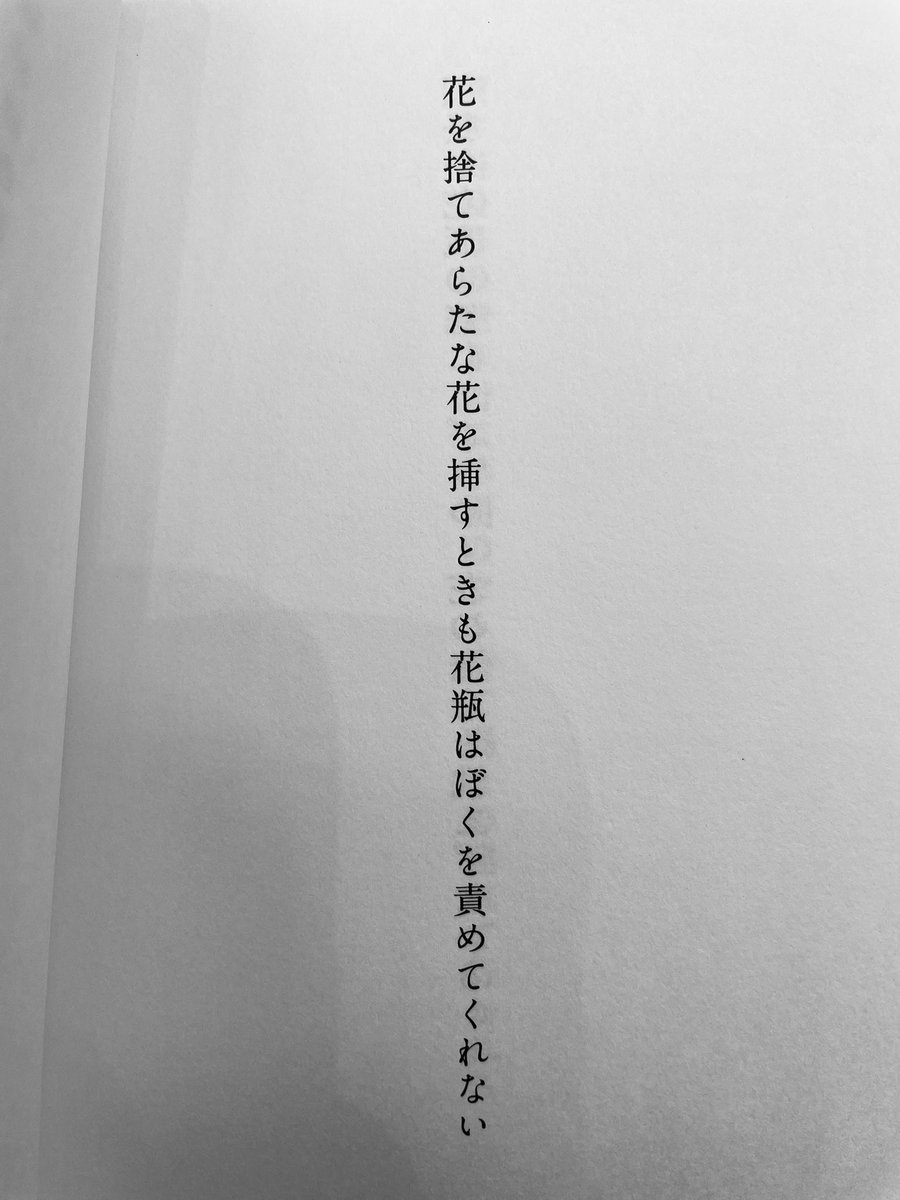 花を捨てあらたな花を挿すときも花瓶はぼくを責めてくれない